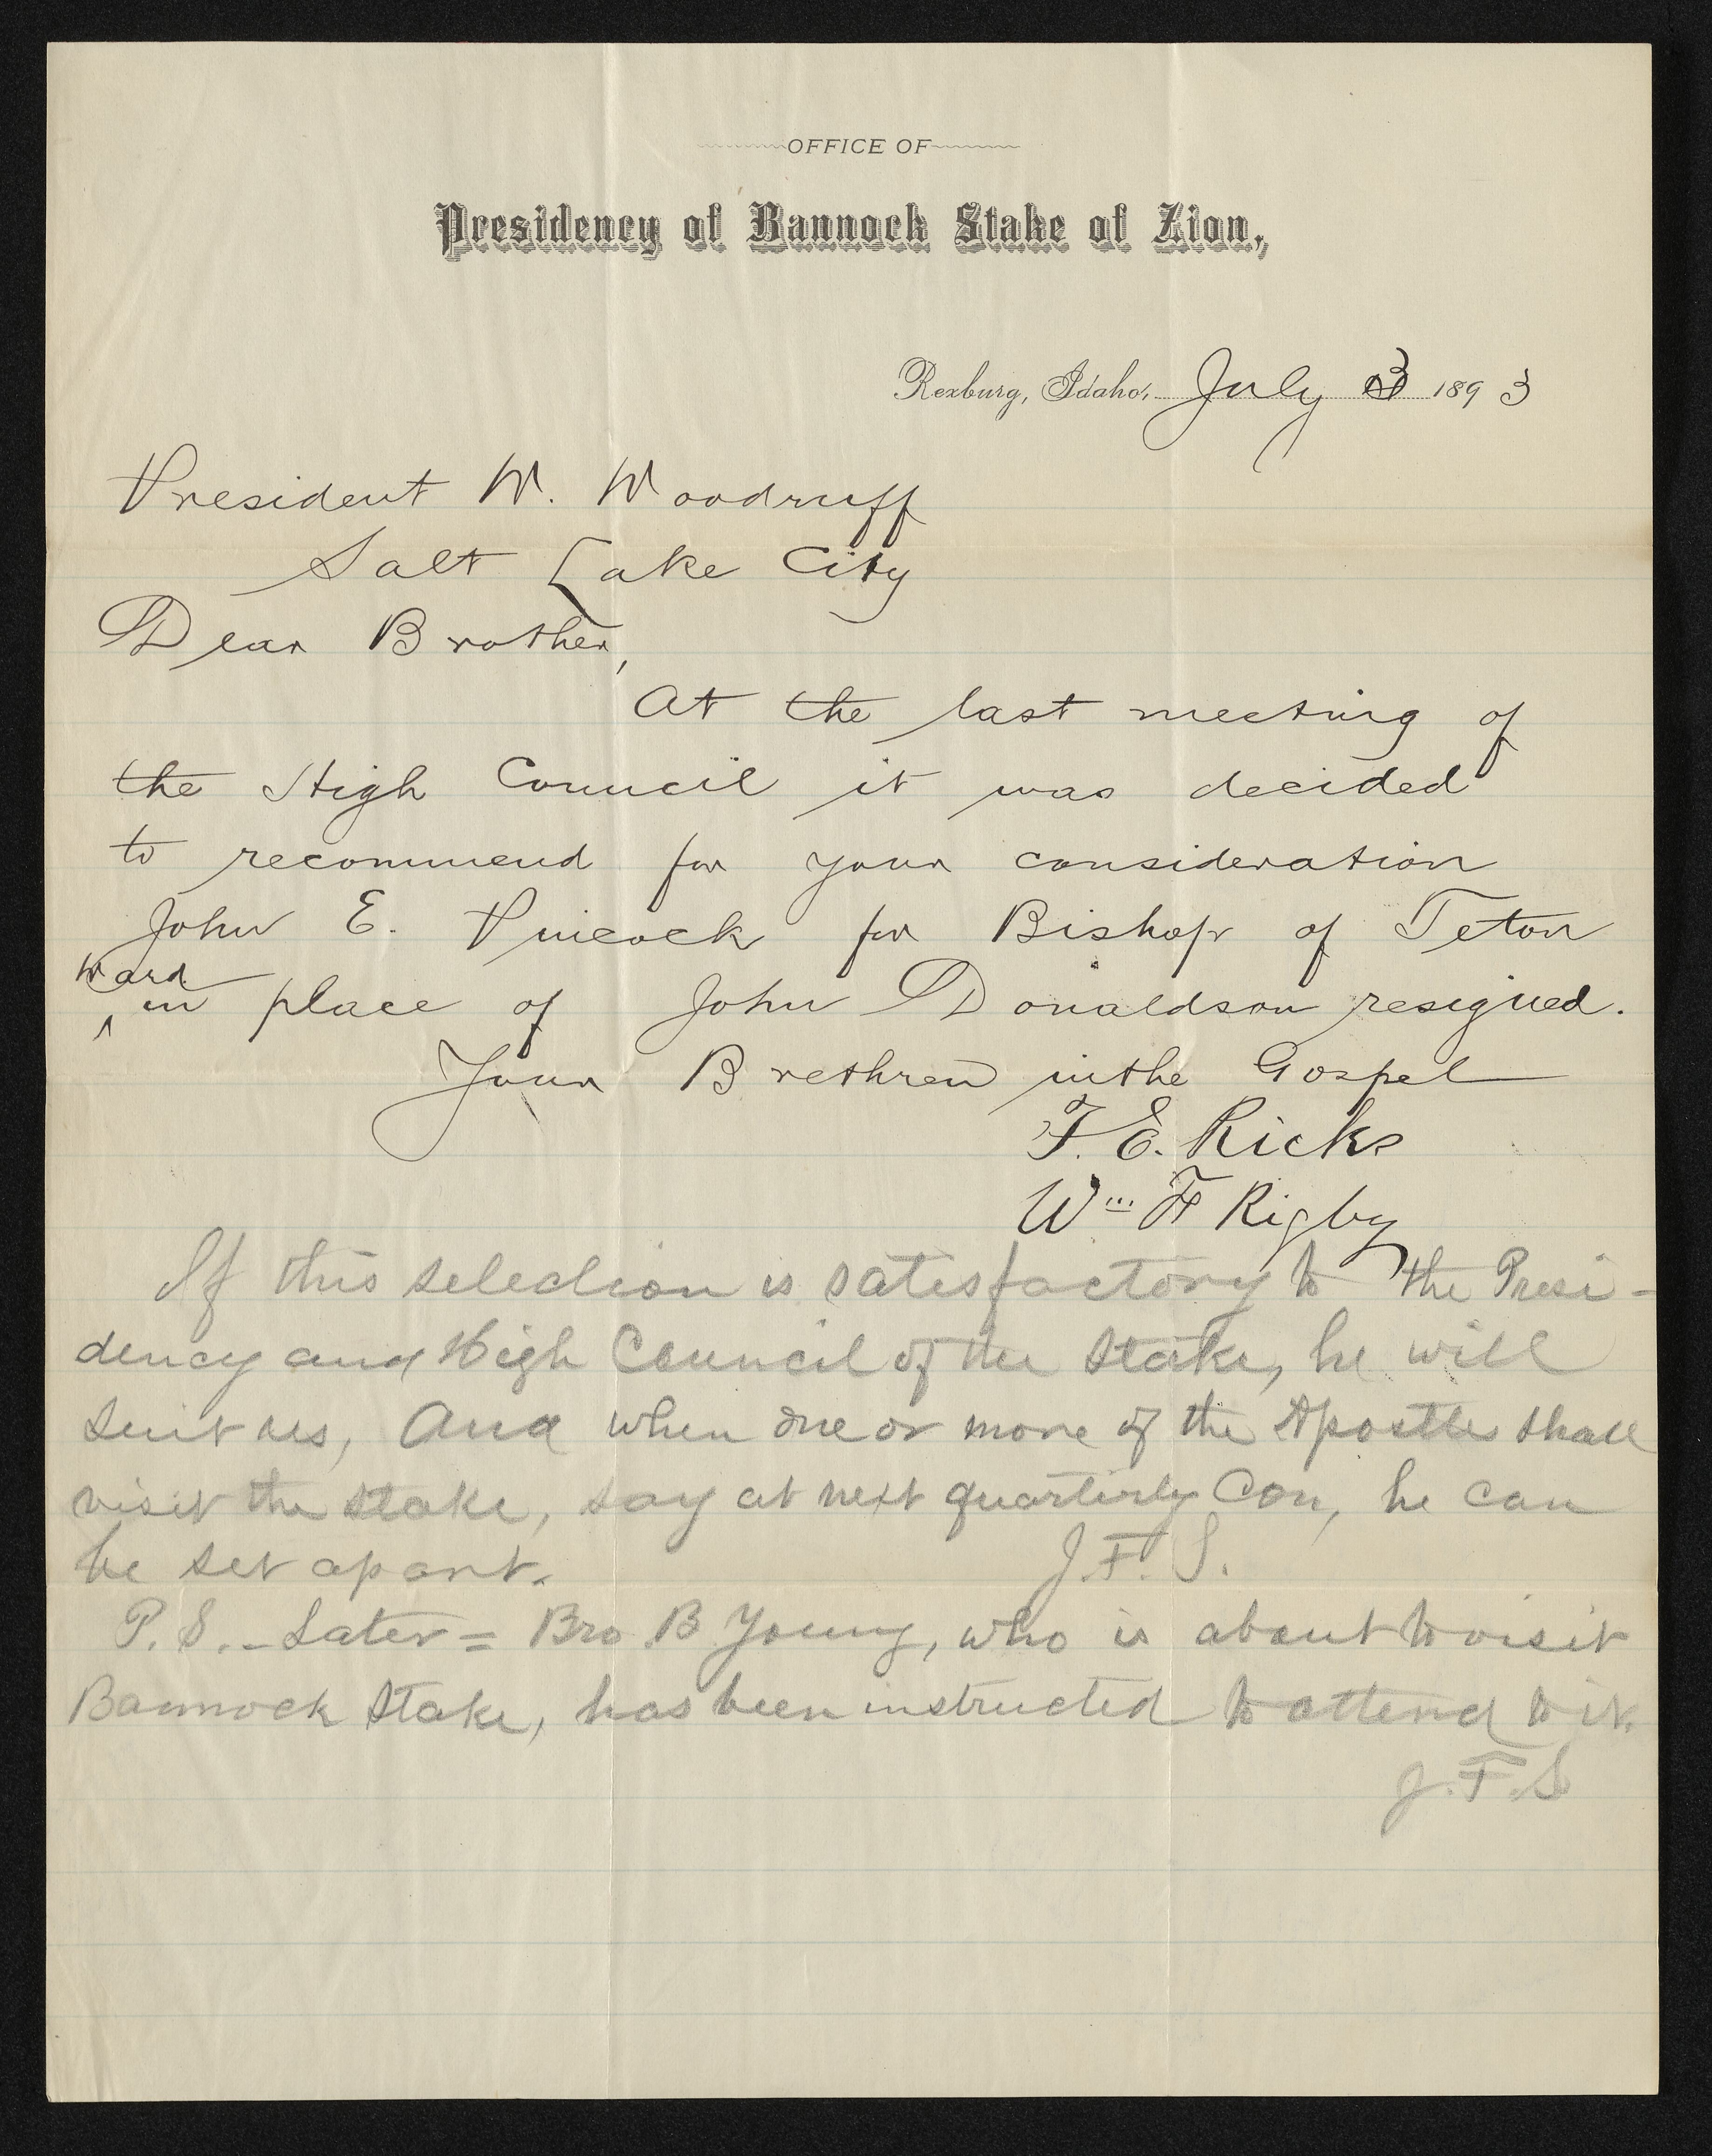 OFFICE OF
Presidency of Bannock Stake of Zion,
Rexburg, Idaho, July 3 1893
President W. Woodruff
Salt Lake City
Dear Brother,
At the last meeting of
the High Council it was decided
to recommend for your consideration
John E. Pincock for Bishop of Teton
ward
^ in place of John Donaldson resigned.
Your Brethren in the Gospel
T. E. Ricks
Wm F Rigby
If this selection is satisfactory to the Presi-
dency and High Council of the Stake, he will
suit us, And when one or more of the Apostles shall
visit the Stake, say at next quarterly Con, he can
be set apart. J. F. S.
P. S. - Later = Bro B Young, who is about to visit
Bannock Stake, has been instructed to attend to it.
J. F. S